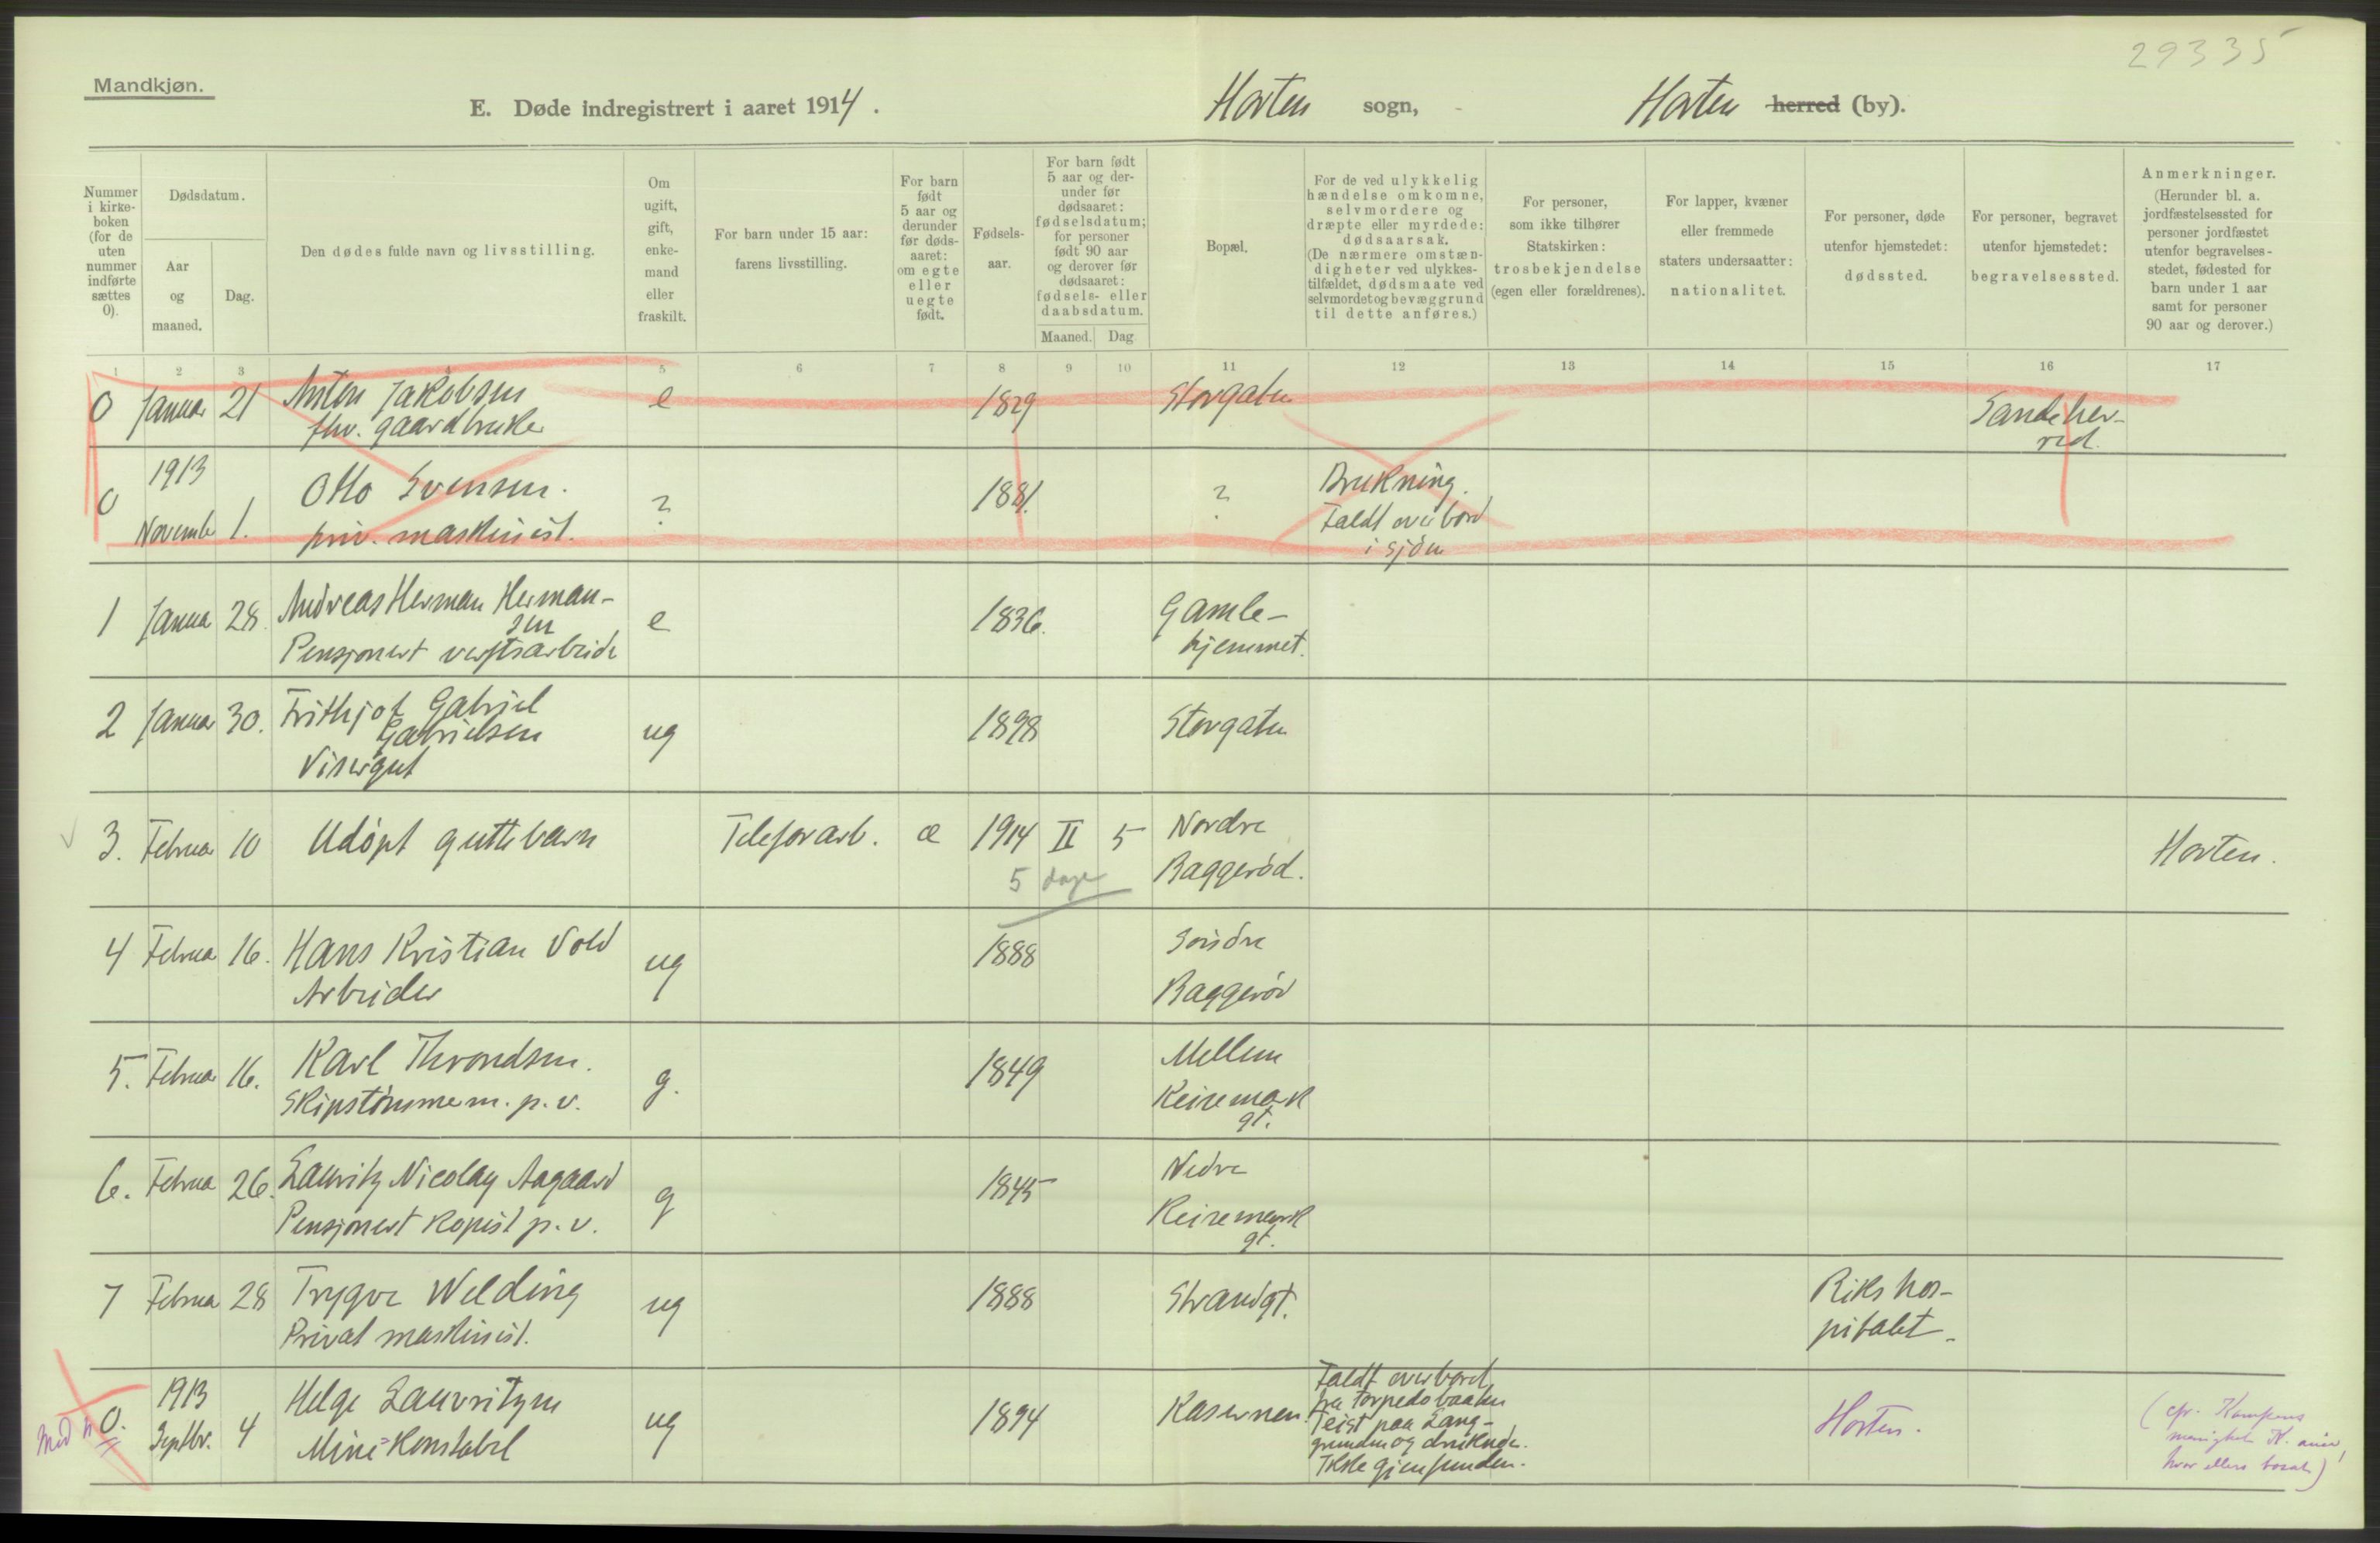 29335
Mandkjøn.
E. Døde indregistrert i aaret 1914. Horten sogn, Horten herred (by).
Nummer i kirkeboken (for de uten nummer indførte sættes 0).
Dødsdatum.
Aar og maaned.
Dag.
Den dødes fulde navn og livsstilling.
Om ugift, gift, enkemand eller fraskilt.
For barn under 15 aar: farens livsstilling.
For barn født 5 aar og derunder før dødsaaret: om egte eller uegte født.
Fødselsaar.
For barn født 5 aar og derunder før dødsaaret: fødselsdatum; for personer født 90 aar og derover før dødsaaret: fødsels- eller daabsdatum.
Maaned. Dag
Bopæl.
For de ved ulykkelig hændelse omkomne, selvmordere og dræpte eller myrdede: dødsaarsak. (De nærmere omstændigheter ved ulykkestilfældet, dødsmaate ved selvmordet og bevæggrund til dette anføres.)
For personer, som ikke tilhører Statskirken: trosbekjendelse (egen eller forældrenes).
For lapper, kvæner eller fremmede staters undersaatter: nationalitet.
For personer, døde utenfor hjemstedet: dødssted.
For personer, begravet utenfor hjemstedet: begravelsessted.
Anmerkninger. (Herunder bl. a. jordfæstelsessted for personer jordfæstet utenfor begravelsesstedet, fødested for barn under 1 aar samt for personer 90 aar og derover.)
1 2 3 4 5 6 7 8 9 10 11 12 13 14 15 16 17
0 Januar 21 Anton Jakobsen e 1829 Storgaten Sandeherred.
fhv. gaardbruker
0 1913 November 1. Otto Svensen. ? 1881. ? Drukning.
priv. maskinist. Faldt overbord
i sjøen
1 Januar 28. Andreas Herman Herman-
sen e 1836. Gamle-
Pensjonert verftsarbeider hjemmet.
2 Januar 30. Frithjof Gabriel
Gabrielsen ug 1898 Storgaten
Visergut
3. Februar 10 Udøpt guttebarn Telefonarb. æ 1914 II 5 Nordre Horten.
5 dage Baggerød.
4 Februar 16. Hans Kristian Vold ug 1888 Søndre
Arbeider Baggerød
5. Februar 16. Karl Throndsen. g. 1849 Mellem
Skipstømmerm. p. v. Keisemark
gt.
6. Februar 26. Lauritz Nicolay Aagaard g 1845 Nedre
Pensjonert Kopist p. v. Keisemark
gt.
7 Februar 28 Trygve Welding ug 1888 Strandgt. Rikshos-
Privat maskinist. pitalet.
Med n 0. 1913 Septbr. 4 Helge Lauritzen ug 1894 Kasernen. Faldt overbord Horten.
Mine-Konstabel fra torpedobaaten
Teist paa Lang-
grunden og druknede.
Ikke gjenfunden.
(cfr. Kampens
menighet K.
hvor ellers bosat)